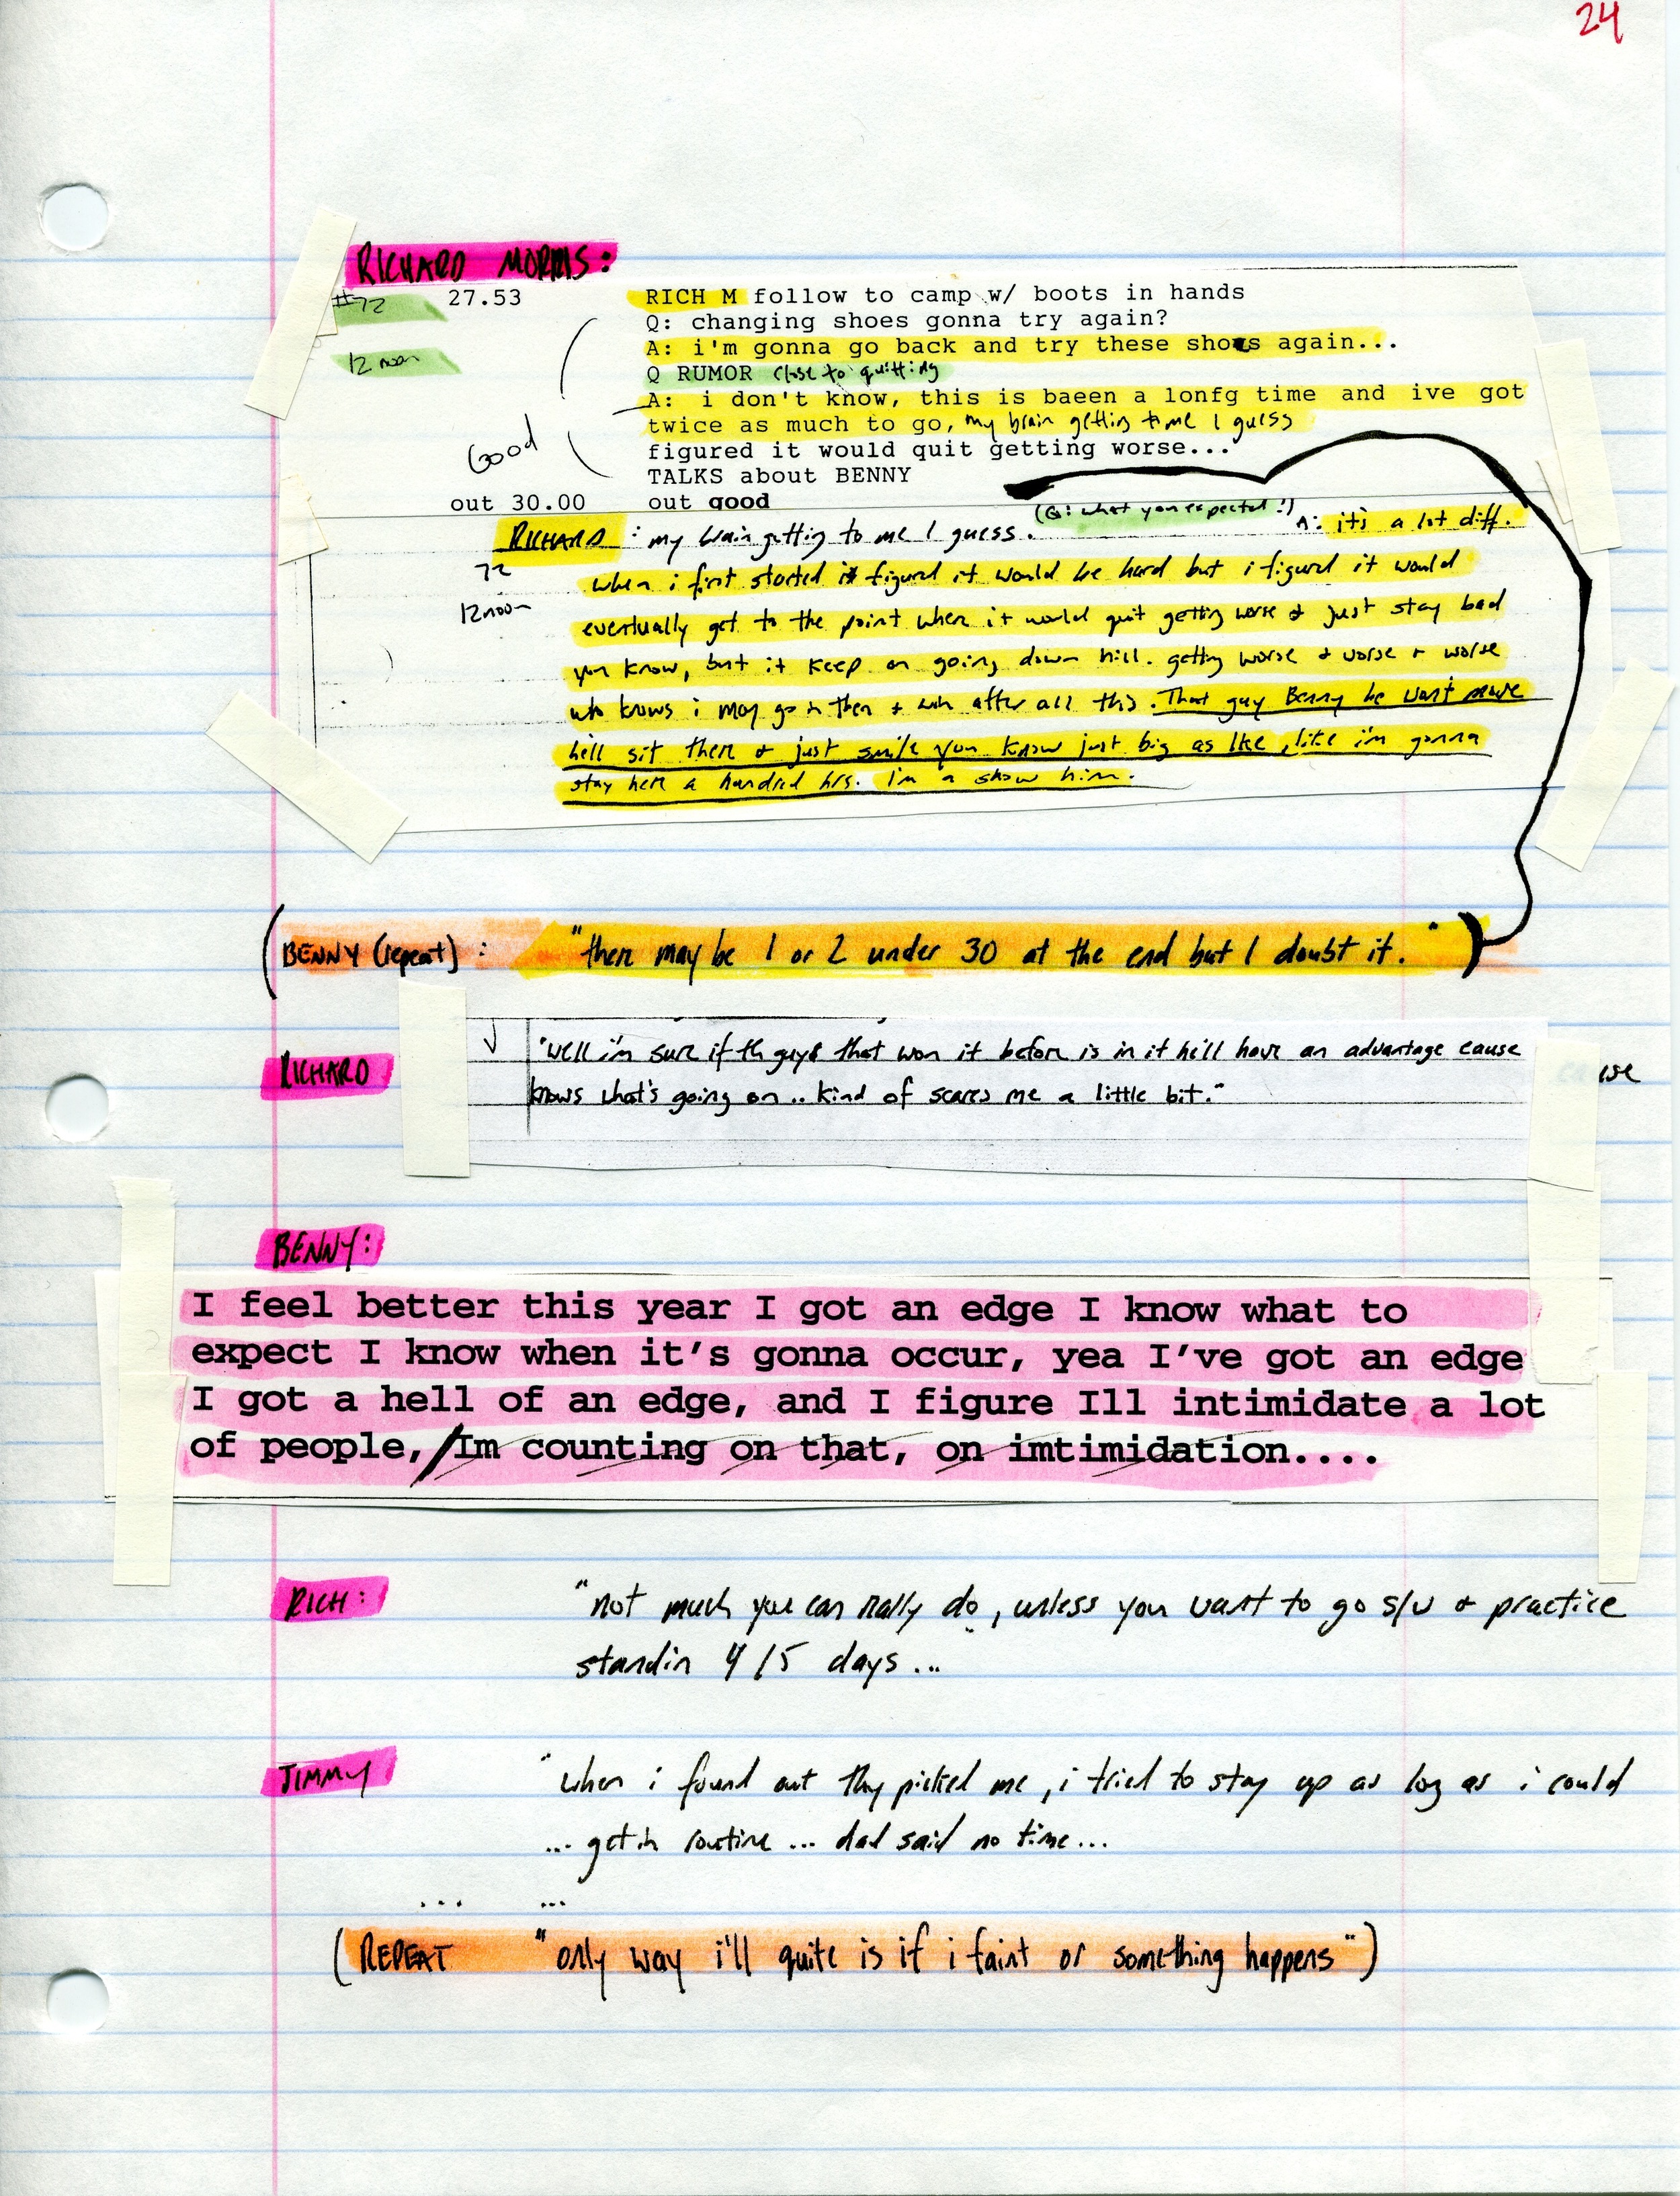 24
RICHARD MORRIS:
#72 27.53 RICH M follow to camp w/ boots in hands
Q: changing shoes gonna try again?
A: i'm gonna go back and try these shoes again...
12 noon Q RUMOR close to quitting
A: i don't know, this is baeen a lonfg time and ive got
twice as much to go, my brain getting to me I guess
Good figured it would quit getting worse...
TALKS about BENNY
out 30.00 out good
(Q: what you expected?) A: it's a lot diff.
RICHARD : my brain getting to me I guess.
72 when i first started i figured it would be hard but i figured it would
12 noon eventually get to the point when it would quit getting worse & just stay bad
you know, but it keep on going down hill. getting worse & worse & worse
who knows i may go in then & win after all this. That guy Benny he won't move
he'll sit there & just smile you know just big as like, like i'm gonna
stay here a hundred hrs. I'm a show him.
(BENNY (repeat) : "there maybe 1 or 2 under 30 at the end but I doubt it. ")
RICHARD "well i'm sure if th guys that won it before is in it he'll have an advantage cause
knows what's going on.. kind of scares me a little bit."
BENNY:
I feel better this year I got an edge I know what to
expect I know when it's gonna occur, yea I've got an edge
I got a hell of an edge, and I figure Ill intimidate a lot
of people, Im counting on that, on imtimidation....
RICH: "not much you can really do, unless you want to go s/w & practice
standin 4/5 days...
JIMMY "when i found out they picked me, i tried to stay up as long as i could
... get in routine ... dad said no time...
... ...
(REPEAT "only way i'll quite is if i faint or something happens")